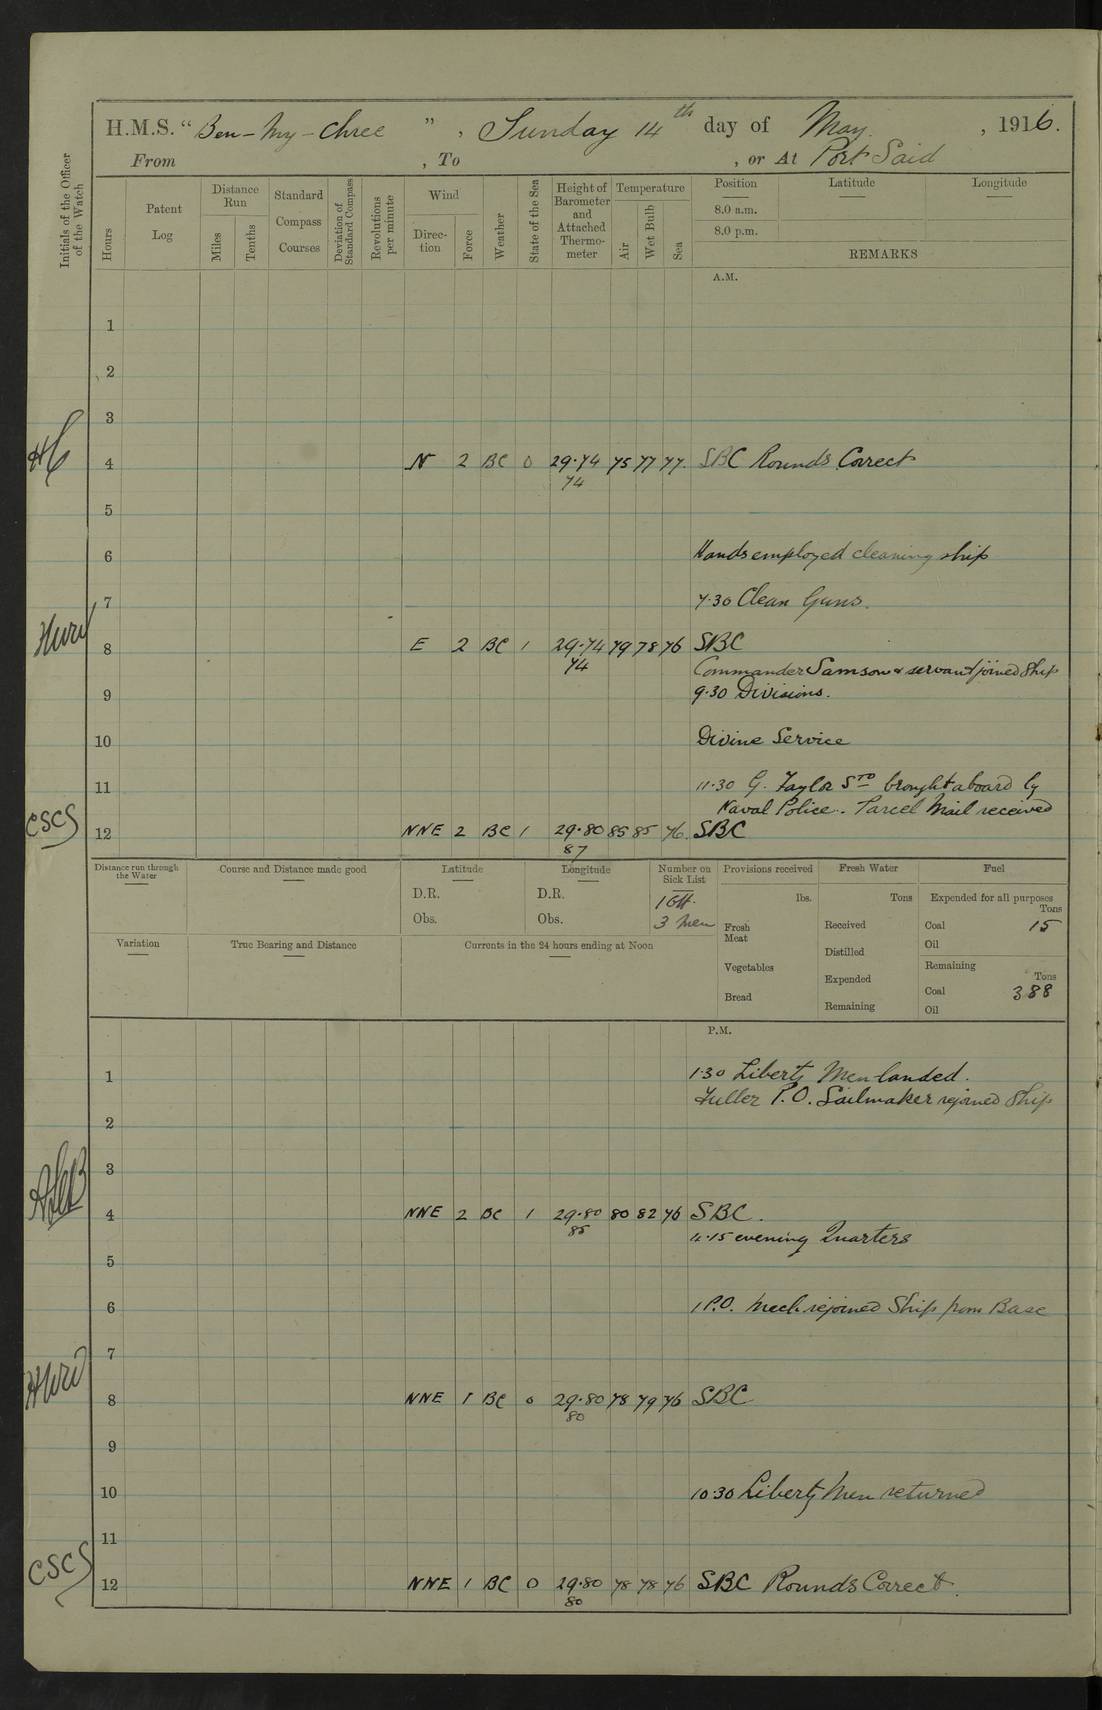 H.M.S. “ Ben-My-Chree ” , Sunday 14th day of May. , 1916.
From , To , or At Port Said
Initials of the Officer of the Watch
Hours
Patent Log
Distance Run
Miles
Tenths
Standard Compass Courses
Deviation of Standard Compass
Revolutions per minute
Wind
Direc-tion
Force
Weather
State of the Sea
Height of Barometer and Attached Thermo-meter
Temperature
Air
Wet Bulb
Sea
Position Latitude Longitude
8.0 a.m.
8.0 p.m.
REMARKS
A.M.
1
2
3
4 N 2 BC 0 29.74 75 77 77. SBC Rounds Correct
74
5
6 Hands employed cleaning ship
7 7.30 Clean Guns.
8 E 2 BC 1 29.74 79 78 76 SBC
74 Commander Samson & servant joined Ship
9 9.30 Divisions.
10 Divine Service
11 11.30 G. Taylor Sto brought aboard by
Naval Police. Parcel Mail received
CSCS 12 NNE 2 BC 1 29.80 85 85 76. SBC
87
Distance run through the Water
Course and Distance made good
Latitude
D.R.
Obs.
Longitude
D.R.
Obs.
Number on Sick List
1 Off.
3 Men
Provisions received
lbs.
Fresh Meat
Vegetables
Bread
Fresh Water
Tons
Received
Distilled
Expended
Remaining
Fuel
Expended for all purposes
Tons
Coal 15
Oil
Remaining
Tons
Coal 388
Oil
Variation
True Bearing and Distance
Currents in the 24 hours ending at Noon
P.M.
1 1.30 Liberty Men landed.
Fuller P.O. Sailmaker rejoined Ship
2
3
4 NNE 2 BC 1 29.80 80 82 76 SBC.
85 4.15 evening Quarters
5
6 1 P.O. Mech rejoined Ship from Base
7
8 NNE 1 BC 0 29.80 78 79 76 SBC
80
9
10 10.30 Liberty Men returned
11
CSCS 12 NNE 1 BC 0 29.80 78 78 76 SBC Rounds Correct.
80